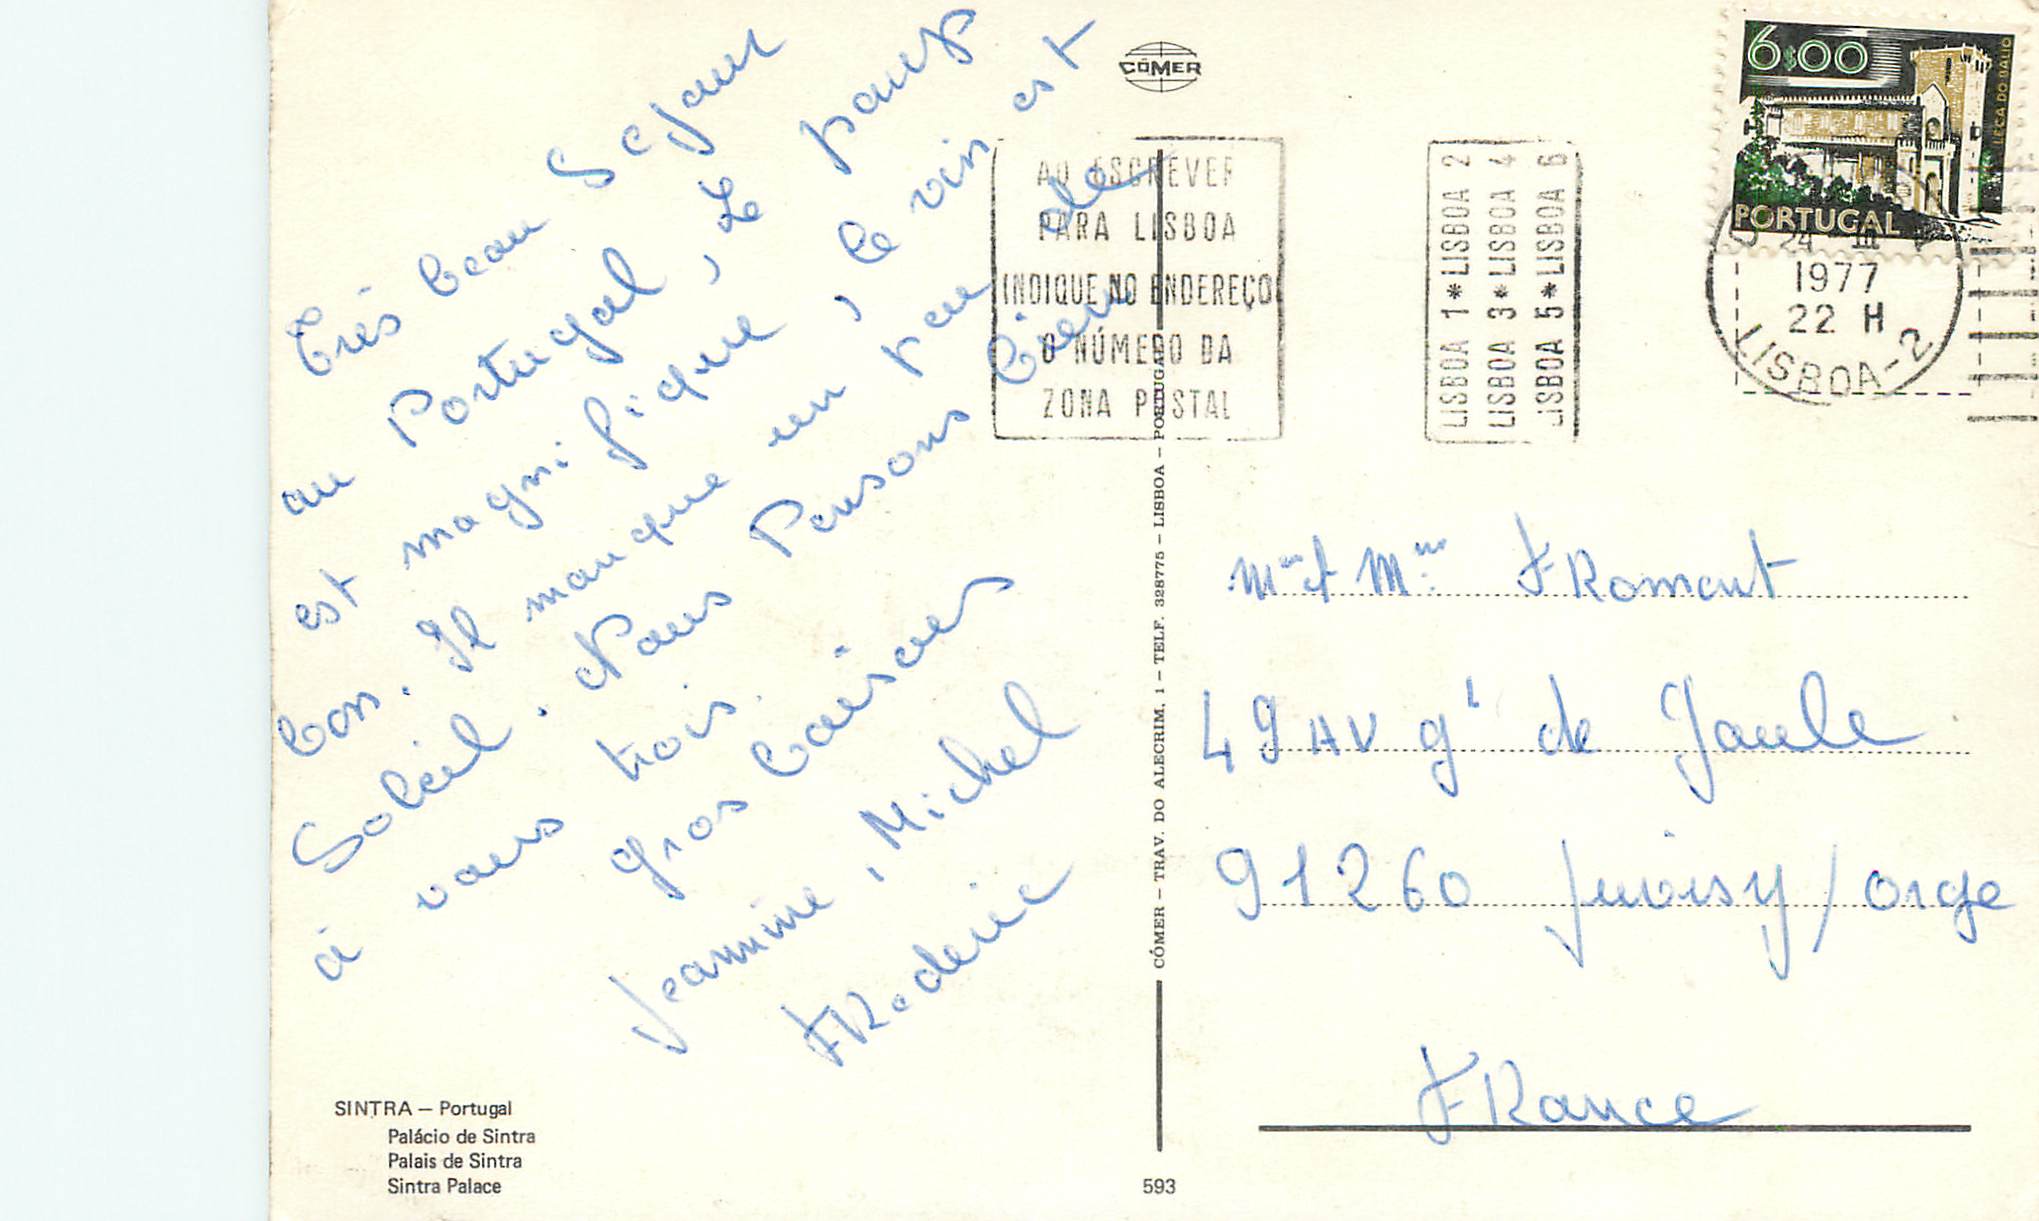 Très beau Séjour
au Portugal, Le pays
est magnifique, le vin est
bon. Il manque un peu de
Soleil. Nous Pensons bien
à vous trois.
gros baisers
Jeannine, Michel
FRederic
SINTRA — Portugal
Palácio de Sintra
Palais de Sintra
Sintra Palace
CÓMER
AO ESCREVER
PARA LISBOA
INDIQUE NO ENDEREÇO
O NÚMERO DA
ZONA POSTAL
LISBOA 1 * LISBOA 2
LISBOA 3 * LISBOA 4
LISBOA 5 * LISBOA 6
6$00
LEÇA DO BALIO
PORTUGAL
24 III
1977
22 H
LISBOA-2
CÓMER — TRAV. DO ALECRIM, 1 — TELF. 328775 — LISBOA — PORTUGAL
FRoment
49 AV gl de Gaule
91260 Juvisy/orge
FRance
593